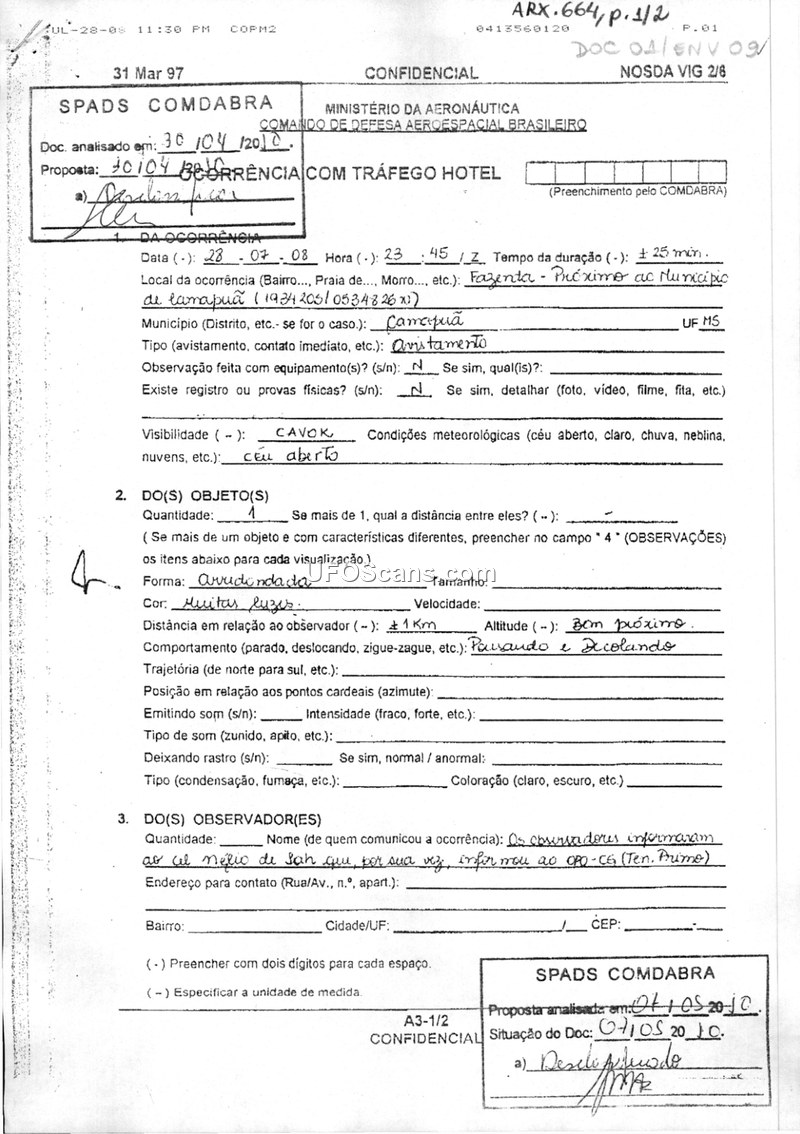 ARX.664, p.1/2
JUL-28-08 11:30 PM COPM2 0413560120 P.01
DOC 01/ENV 09
31 Mar 97 CONFIDENCIAL NOSDA VIG 2/6
SPADS COMDABRA
Doc. analisado em: 30/04/2010.
Proposta: 30/04/2010
a) Desclassificar
MINISTÉRIO DA AERONÁUTICA
COMANDO DE DEFESA AEROESPACIAL BRASILEIRO
OCORRÊNCIA COM TRÁFEGO HOTEL
(Preenchimento pelo COMDABRA)
1. DA OCORRÊNCIA
Data (-): 28 - 07 - 08 Hora (-): 23 : 45 / Z Tempo da duração (-): ± 25 min.
Local da ocorrência (Bairro..., Praia de..., Morro..., etc.): Fazenta - Próximo ao Município
de Camapuã (1934205/0534826W)
Município (Distrito, etc.- se for o caso.): Camapuã UF MS
Tipo (avistamento, contato imediato, etc.): Avistamento
Observação feita com equipamento(s)? (s/n): N Se sim, qual(is)?:
Existe registro ou provas físicas? (s/n): N Se sim, detalhar (foto, vídeo, filme, fita, etc.)
Visibilidade ( -- ): CAVOK Condições meteorológicas (céu aberto, claro, chuva, neblina,
nuvens, etc.): céu aberto
2. DO(S) OBJETO(S)
Quantidade: 1 Se mais de 1, qual a distância entre eles? ( -- ): -
( Se mais de um objeto e com características diferentes, preencher no campo " 4 " (OBSERVAÇÕES)
os itens abaixo para cada visualização.)
Forma: Arredondada Tamanho:
UFOScans.com
Cor: Muitas luzes. Velocidade:
Distância em relação ao observador ( -- ): ± 1 Km Altitude ( -- ): Bem próximo.
Comportamento (parado, deslocando, zigue-zague, etc.): Pousando e Decolando
Trajetória (de norte para sul, etc.):
Posição em relação aos pontos cardeais (azimute):
Emitindo som (s/n): Intensidade (fraco, forte, etc.):
Tipo de som (zunido, apito, etc.):
Deixando rastro (s/n): Se sim, normal / anormal:
Tipo (condensação, fumaça, etc.): Coloração (claro, escuro, etc.)
3. DO(S) OBSERVADOR(ES)
Quantidade: Nome (de quem comunicou a ocorrência): Os observadores informaram
ao cel que, por sua vez, informou ao (Ten. Primo)
Endereço para contato (Rua/Av., n.º, apart.):
Bairro: Cidade/UF: / CEP: -
( - ) Preencher com dois dígitos para cada espaço.
( -- ) Especificar a unidade de medida.
A3-1/2
CONFIDENCIAL
SPADS COMDABRA
Proposta analisada em: 07/05 2010.
Situação do Doc: 07/05 2010.
a) Desclassificado